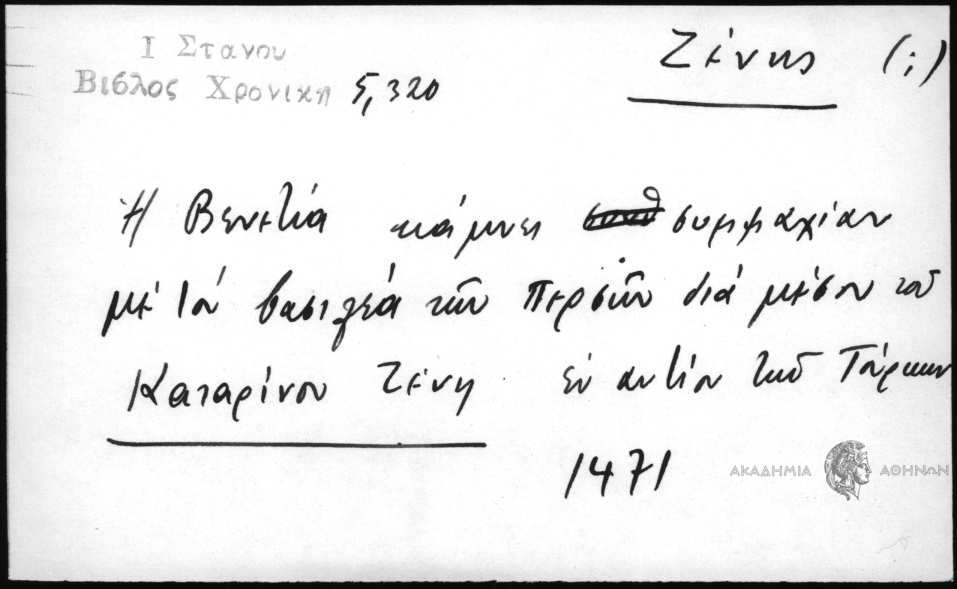 Ι Στανου
Βιβλος Χρονικη 5,320
Ζένης (;)
Ἡ Βενετία κάμνει συμμαχίαν
μέ τόν βασιλέα τῶν Περσῶν διά μέσου τοῦ
Καταρίνου Ζένη ἐναντίον τοῦ Τούρκου
1471
ΑΚΑΔΗΜΙΑ ΑΘΗΝΩΝ